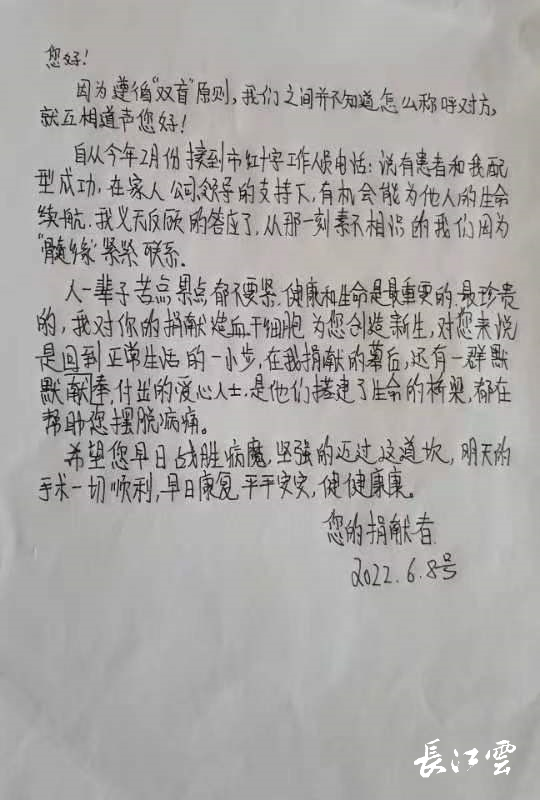 您好！
因为遵循“双盲”原则，我们之间并不知道怎么称呼对方，
就互相道声您好！
自从今年2月份接到市红十字工作人员电话：说有患者和我配
型成功，在家人公司领导的支持下，有机会能为他人的生命
续航，我义无反顾的答应了，从那一刻素不相识的我们因为
“髓缘”紧紧联系。
人一辈子苦点累点都不要紧，健康和生命是最重要的，最珍贵
的，我对你的捐献造血干细胞为您创造新生，对您来说
是回到正常生活的一小步，在我捐献的幕后，还有一群默
默献奉，付出的爱心人士，是他们搭建了生命的桥梁，都在
帮助您摆脱病痛。
希望您早日战胜病魔，坚强的迈过这道坎，明天的
手术一切顺利，早日康复，平平安安，健健康康。
您的捐献者
2022.6.8号
長江雲